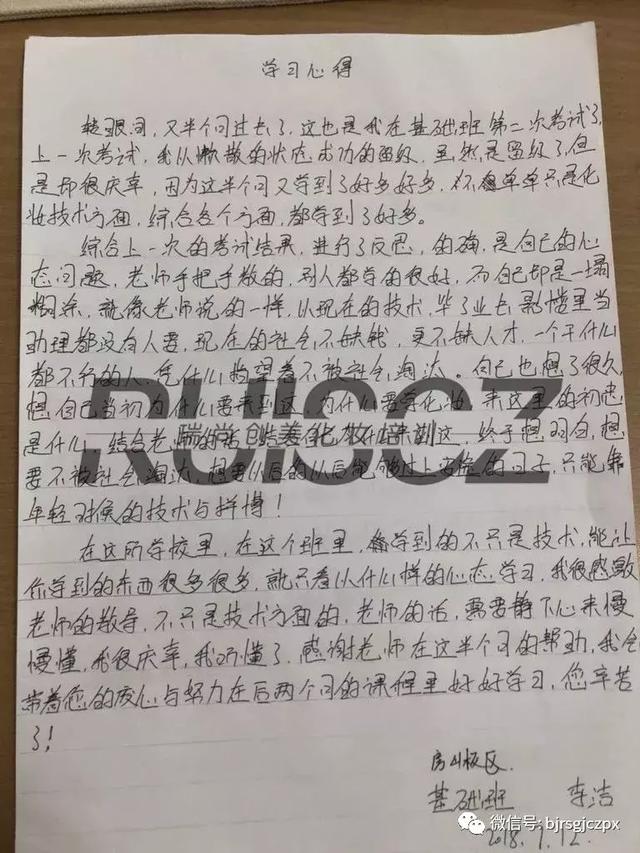 学习心得
转眼间，又半个月过去了，这也是我在基础班第二次考试了，
上一次考试，我从懒散的状态成功的留级，虽然是留级了，但
是却很庆幸，因为这半个月又学到了好多好多，不单单只是化
妆技术方面，综合各个方面，都学到了好多。
综合上一次的考试结果，进行了反思，的确，是自己的心
态问题，老师手把手教的，别人都学的很好，而自己却是一塌
糊涂，就像老师说的一样，以现在的技术，毕了业去影楼里当
助理都没有人要，现在的社会不缺钱，更不缺人才，一个干什么
都不行的人，凭什么指望着不被社会淘汰。自己也想了很久，
想自己当初为什么要来到这，为什么要学化妆，来这里的初衷
是什么，结合老师的话，这，终于想明白，想
要不被社会淘汰，想要以后的以后能够过上安稳的日子，只能靠
年轻时候的技术与拼搏！
在这所学校里，在这个班里，学到的不只是技术，能让
你学到的东西很多很多，就只看以什么样的心态学习，我很感激
老师的教导，不只是技术方面的，老师的话，需要静下心来慢
慢懂，我很庆幸，我听懂了，感谢老师在这半个月的帮助，我会
带着您的爱心与努力在后两个月的课程里好好学习，您辛苦
了！
房山校区
基础班 李洁
2018.7.12
RUISCZ
瑞尚创美化妆培训
微信号: bjrsgjczpx